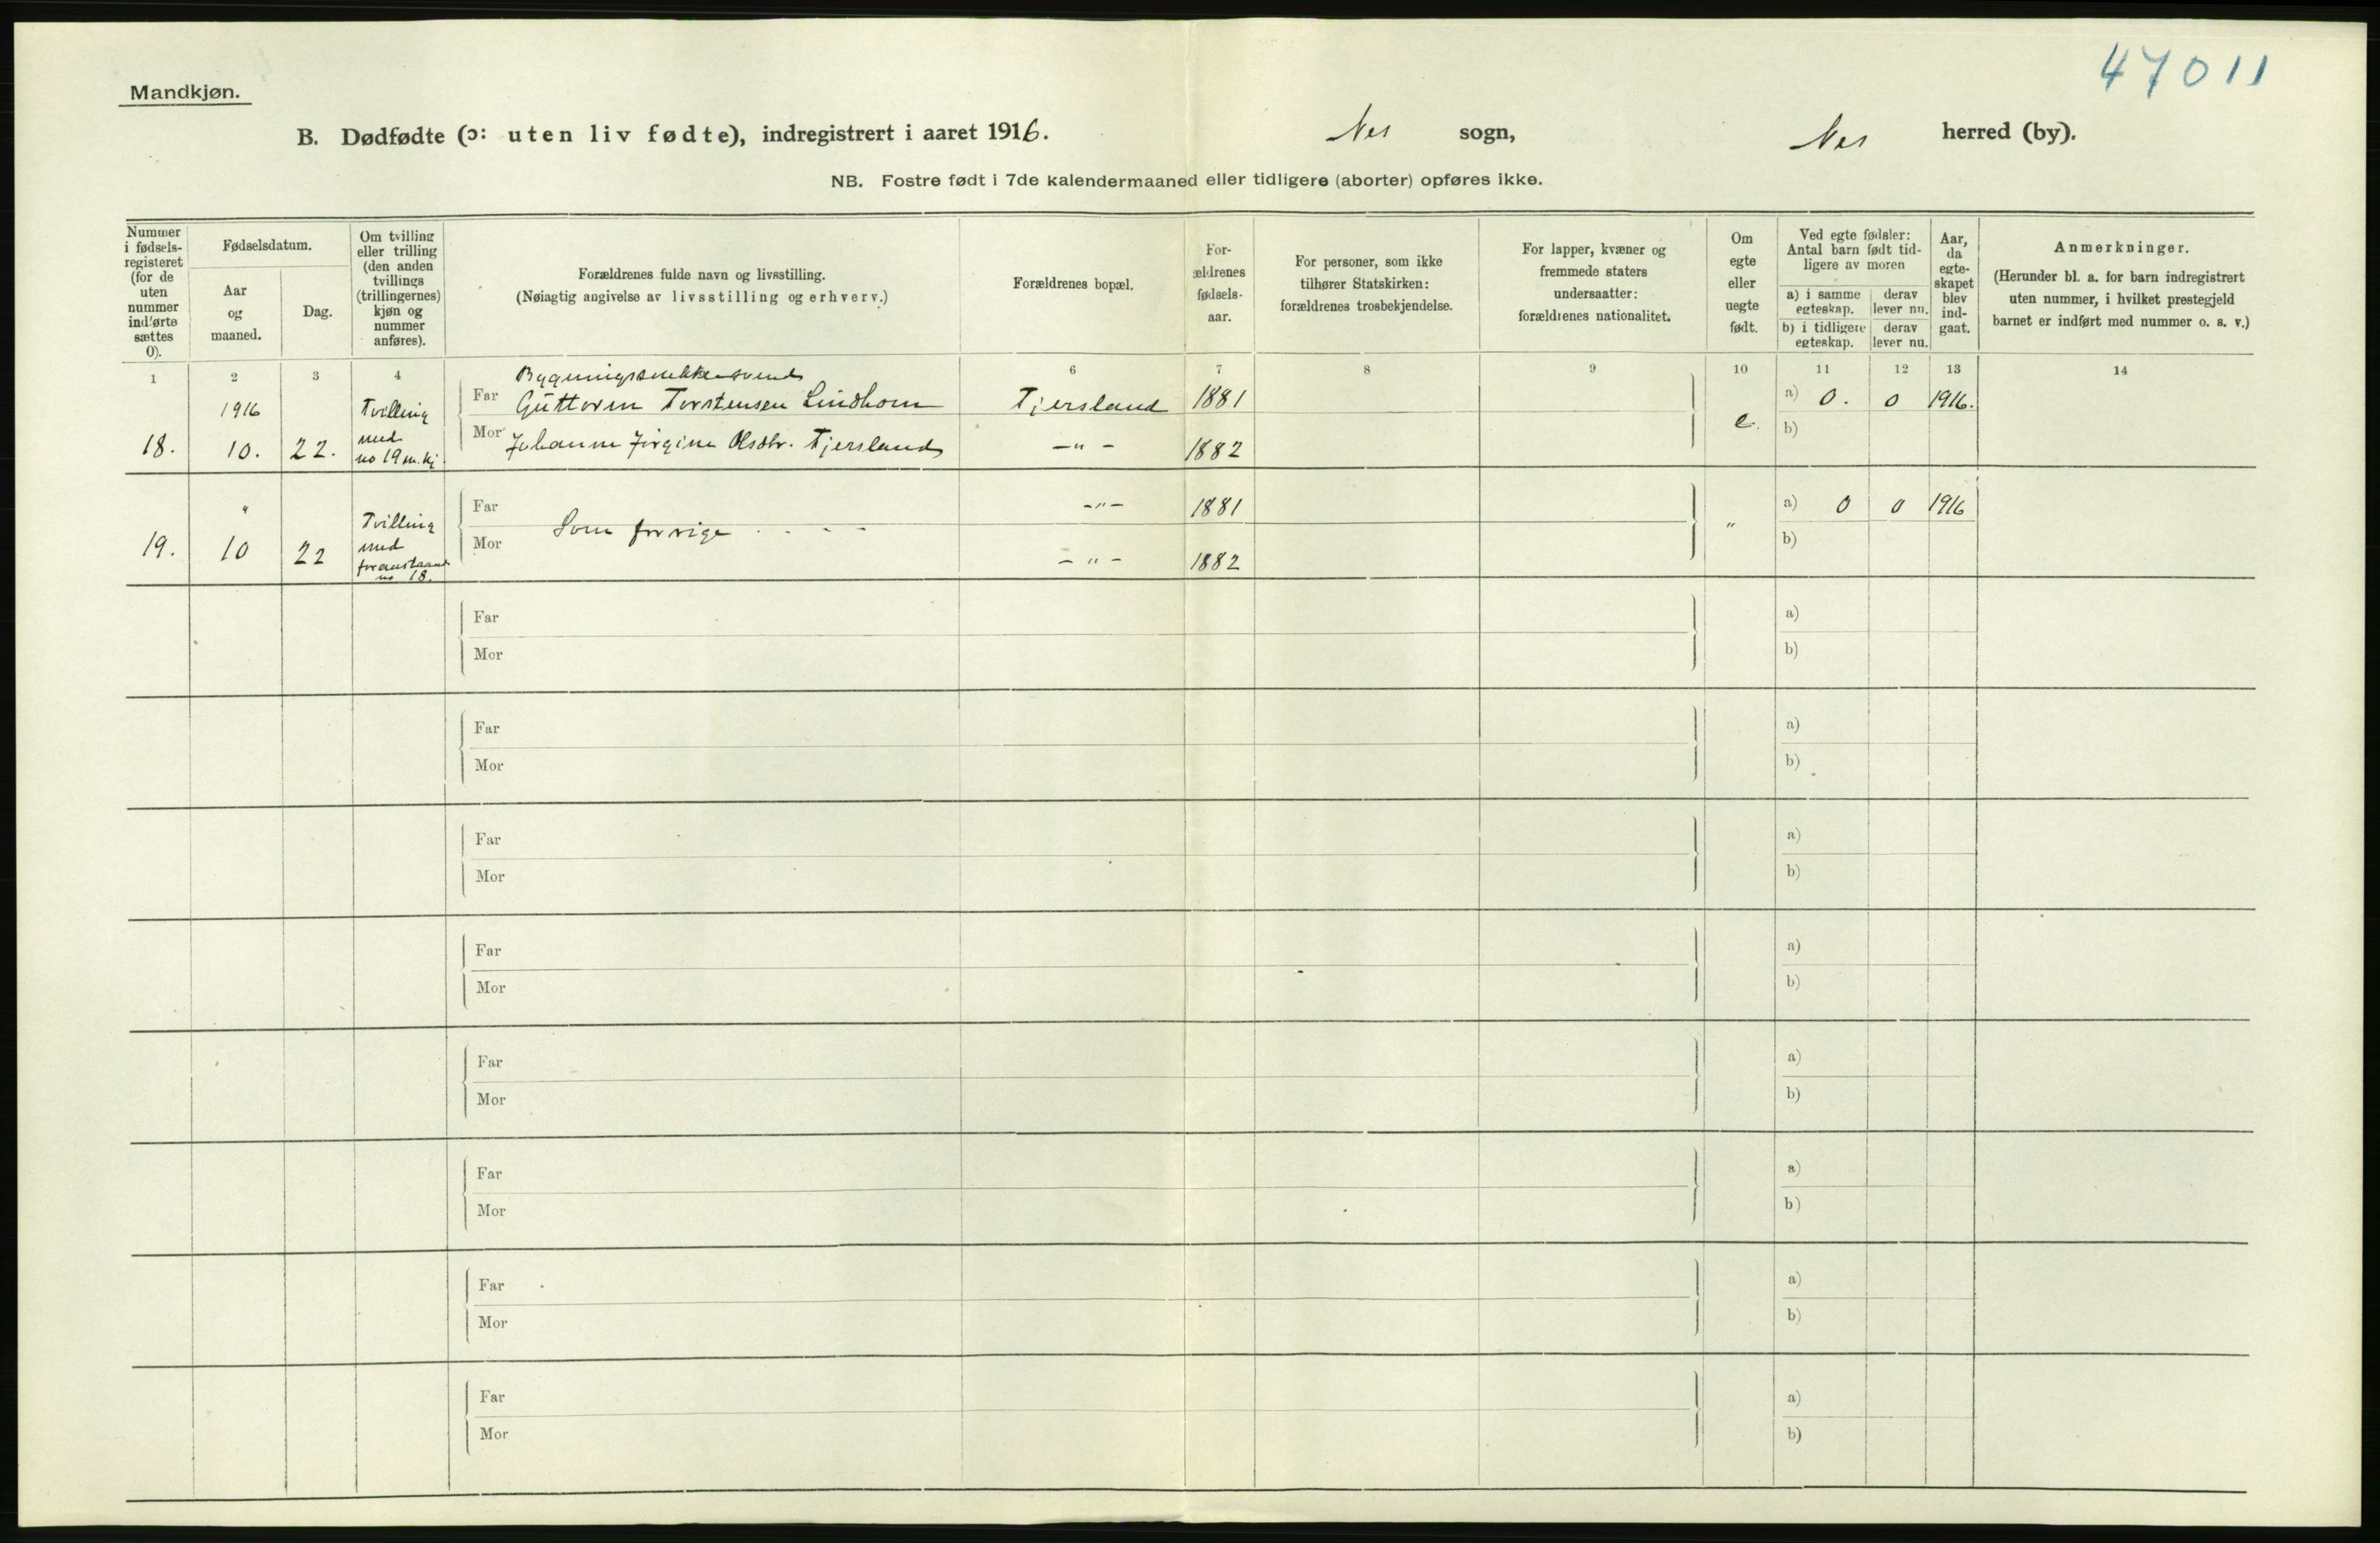 47011
Mandkjøn.
B. Dødfødte (ɔ: uten liv fødte), indregistrert i aaret 1916. Nes sogn, Nes herred (by).
NB. Fostre født i 7de kalendermaaned eller tidligere (aborter) opføres ikke.
Nummer i fødsels-registeret (for de uten nummer indførte sættes 0).
Fødselsdatum.
Aar og maaned.
Dag.
Om tvilling eller trilling (den anden tvillings (trillingernes) kjøn og nummer anføres).
Forældrenes fulde navn og livsstilling.
(Nøiagtig angivelse av livsstilling og erhverv.)
Forældrenes bopæl.
For-ældrenes fødsels-aar.
For personer, som ikke tilhører Statskirken: forældrenes trosbekjendelse.
For lapper, kvæner og fremmede staters undersaatter: forældrenes nationalitet.
Om egte eller uegte født.
Ved egte fødsler: Antal barn født tid-ligere av moren
a) i samme egteskap. derav lever nu.
b) i tidligere egteskap. derav lever nu.
Aar, da egte-skapet blev ind-gaat.
Anmerkninger.
(Herunder bl. a. for barn indregistrert uten nummer, i hvilket prestegjeld barnet er indført med nummer o. s. v.)
1 2 3 4 6 7 8 9 10 11 12 13 14
Bygningssnekkersvend
1916 Tvilling Far Guttorm Torstensen Lindhom Tjersland 1881 a) 0. 0 1916.
18. 10. 22. med no 19 m. kj Mor Johanne Jørgine Olsdtr. Tjersland -"- 1882 e. b)
" Tvilling Far -"- 1881 a) 0 0 1916
19. 10 22 med foranstaaende no 18. Mor Som forrige -"- 1882 " b)
Far a)
Mor b)
Far a)
Mor b)
Far a)
Mor b)
Far a)
Mor b)
Far a)
Mor b)
Far a)
Mor b)
Far a)
Mor b)
Far a)
Mor b)